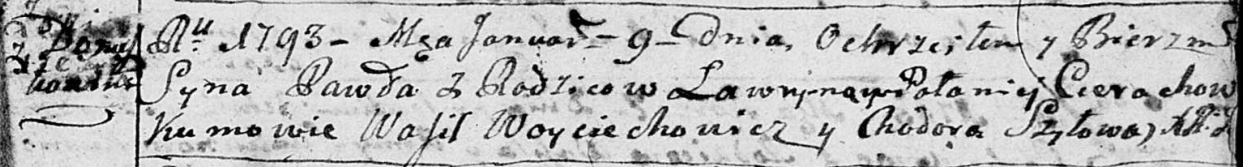 Rᵘ 1793 – Mca Januar – 9 – Dnia, Ochrzciłem y Bierzm
Syna Pawła z Rodzicow Ławryna y Połaniej Cierachow
Kumowie Wasil Woyciechowicz y Chodora Szyłowa,